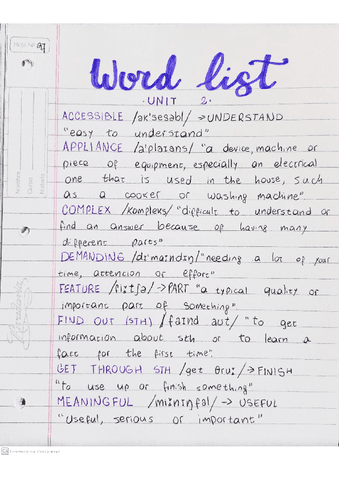 Word list
UNIT 2.
ACCESSIBLE /ək'sesəbl/ → UNDERSTAND
"easy to understand"
APPLIANCE /ə'plaɪəns/ "a device, machine or
piece of equipment, especially an electrical
one that is used in the house, such
as a cooker or washing machine".
COMPLEX /kɒmpleks/ "difficult to understand or
find an answer because of having many
different parts"
DEMANDING /dɪ'mɑːndɪŋ/ "needing a lot of your
time, attencion or effort"
FEATURE /fiːtʃə/ → PART "a typical quality or
important part of something"
FIND OUT (STH) /faɪnd aʊt/ "to get
information about sth or to learn a
fact for the first time".
GET THROUGH STH /get θruː/ → FINISH
"to use up or finish something"
MEANINGFUL /miːnɪŋfəl/ → USEFUL
"Useful, serious or important"